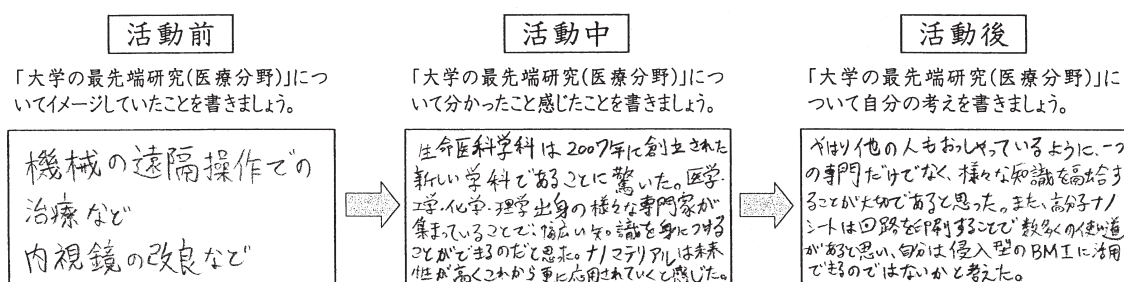 活動前
「大学の最先端研究(医療分野)」につ
いてイメージしていたことを書きましょう。
機械の遠隔操作での
治療など
内視鏡の改良など
活動中
「大学の最先端研究(医療分野)」につ
いて分かったこと感じたことを書きましょう。
生命医科学科は2007年に創立された
新しい学科であることに驚いた。医学・
工学・化学・理学出身の様々な専門家が
集まっていることで、幅広い知識を身につける
ことができるのだと思った。ナノマテリアルは未来
性が高くこれから更に応用されていくと感じた。
活動後
「大学の最先端研究(医療分野)」に
ついて自分の考えを書きましょう。
やはり他の人もおっしゃっているように、一つ
の専門だけでなく、様々な知識を融合す
ることが大切であると思った。また、高分子ナノ
シートは回路を印刷することで数多くの使い道
があると思い、自分は侵入型のBMIに活用
できるのではないかと考えた。